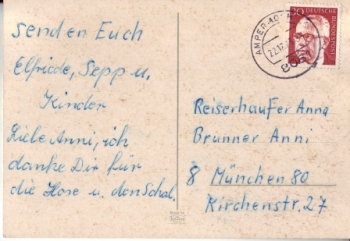 senden Euch
Elfriede, Sepp u.
Kinder
Liebe Anni, ich
danke Dir für
die Hose u. den Schal.
30
DEUTSCHE
BUNDESPOST
Reiserhaufer Anna
Brunner Anni
8 München 80
Kirchenstr. 27